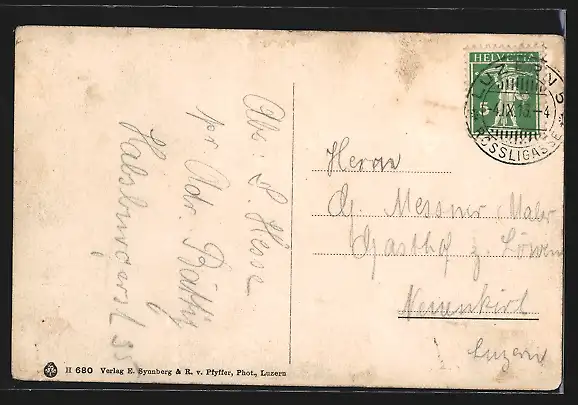 Abs: S. Hesse
pr Adr. Rättig
Habsburgerst 35
HELVETIA
5
LUZERN 5
-4.IX.13.-4
RÖSSLIGASSE
Herrn
G. Messner, Maler
Gasthof z. Löwen
Neuenkirch
Luzern
H 680 Verlag E. Synnberg & R. v. Pfyffer, Phot., Luzern